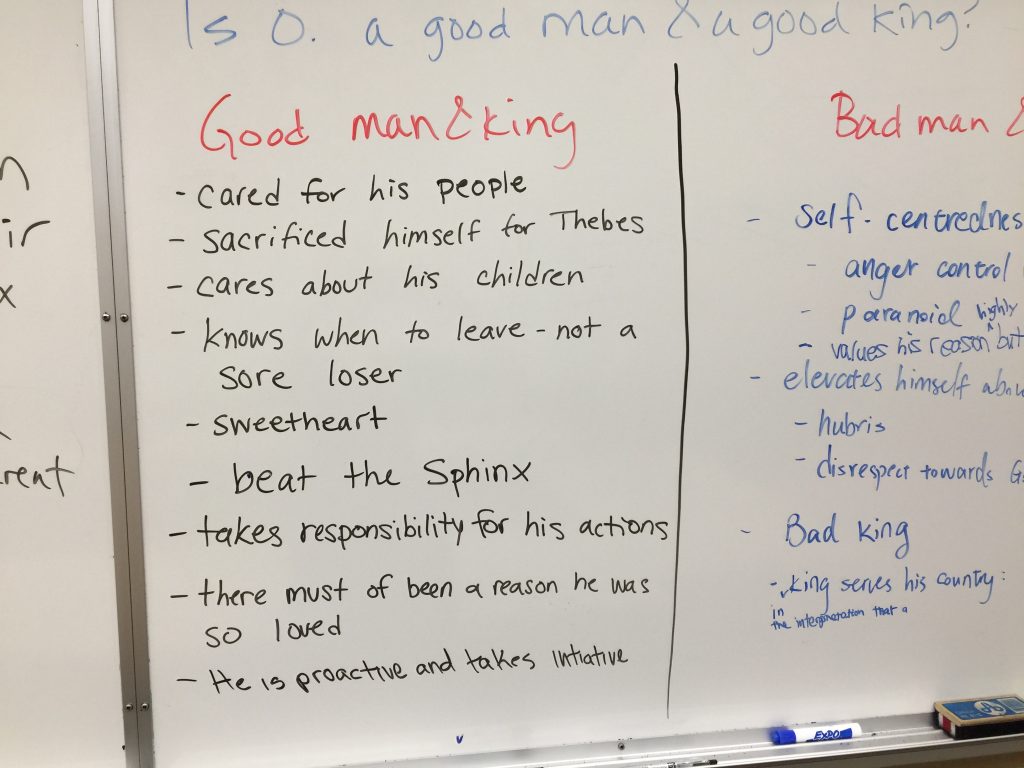 Is O. a good man & a good king?
Good man & king
- cared for his people
- sacrificed himself for Thebes
- cares about his children
- knows when to leave - not a
sore loser
- sweetheart
- beat the Sphinx
- takes responsibility for his actions
- there must of been a reason he was
so loved
- He is proactive and takes intiative
Bad man &
- Self-centrednes
- anger control
- paranoid
highly
- values his reason but
- elevates himself abov
- hubris
- disrespect towards G
- Bad king
- king serves his country:
in
the interpretation that a
n
ir
x
rent
EXPO